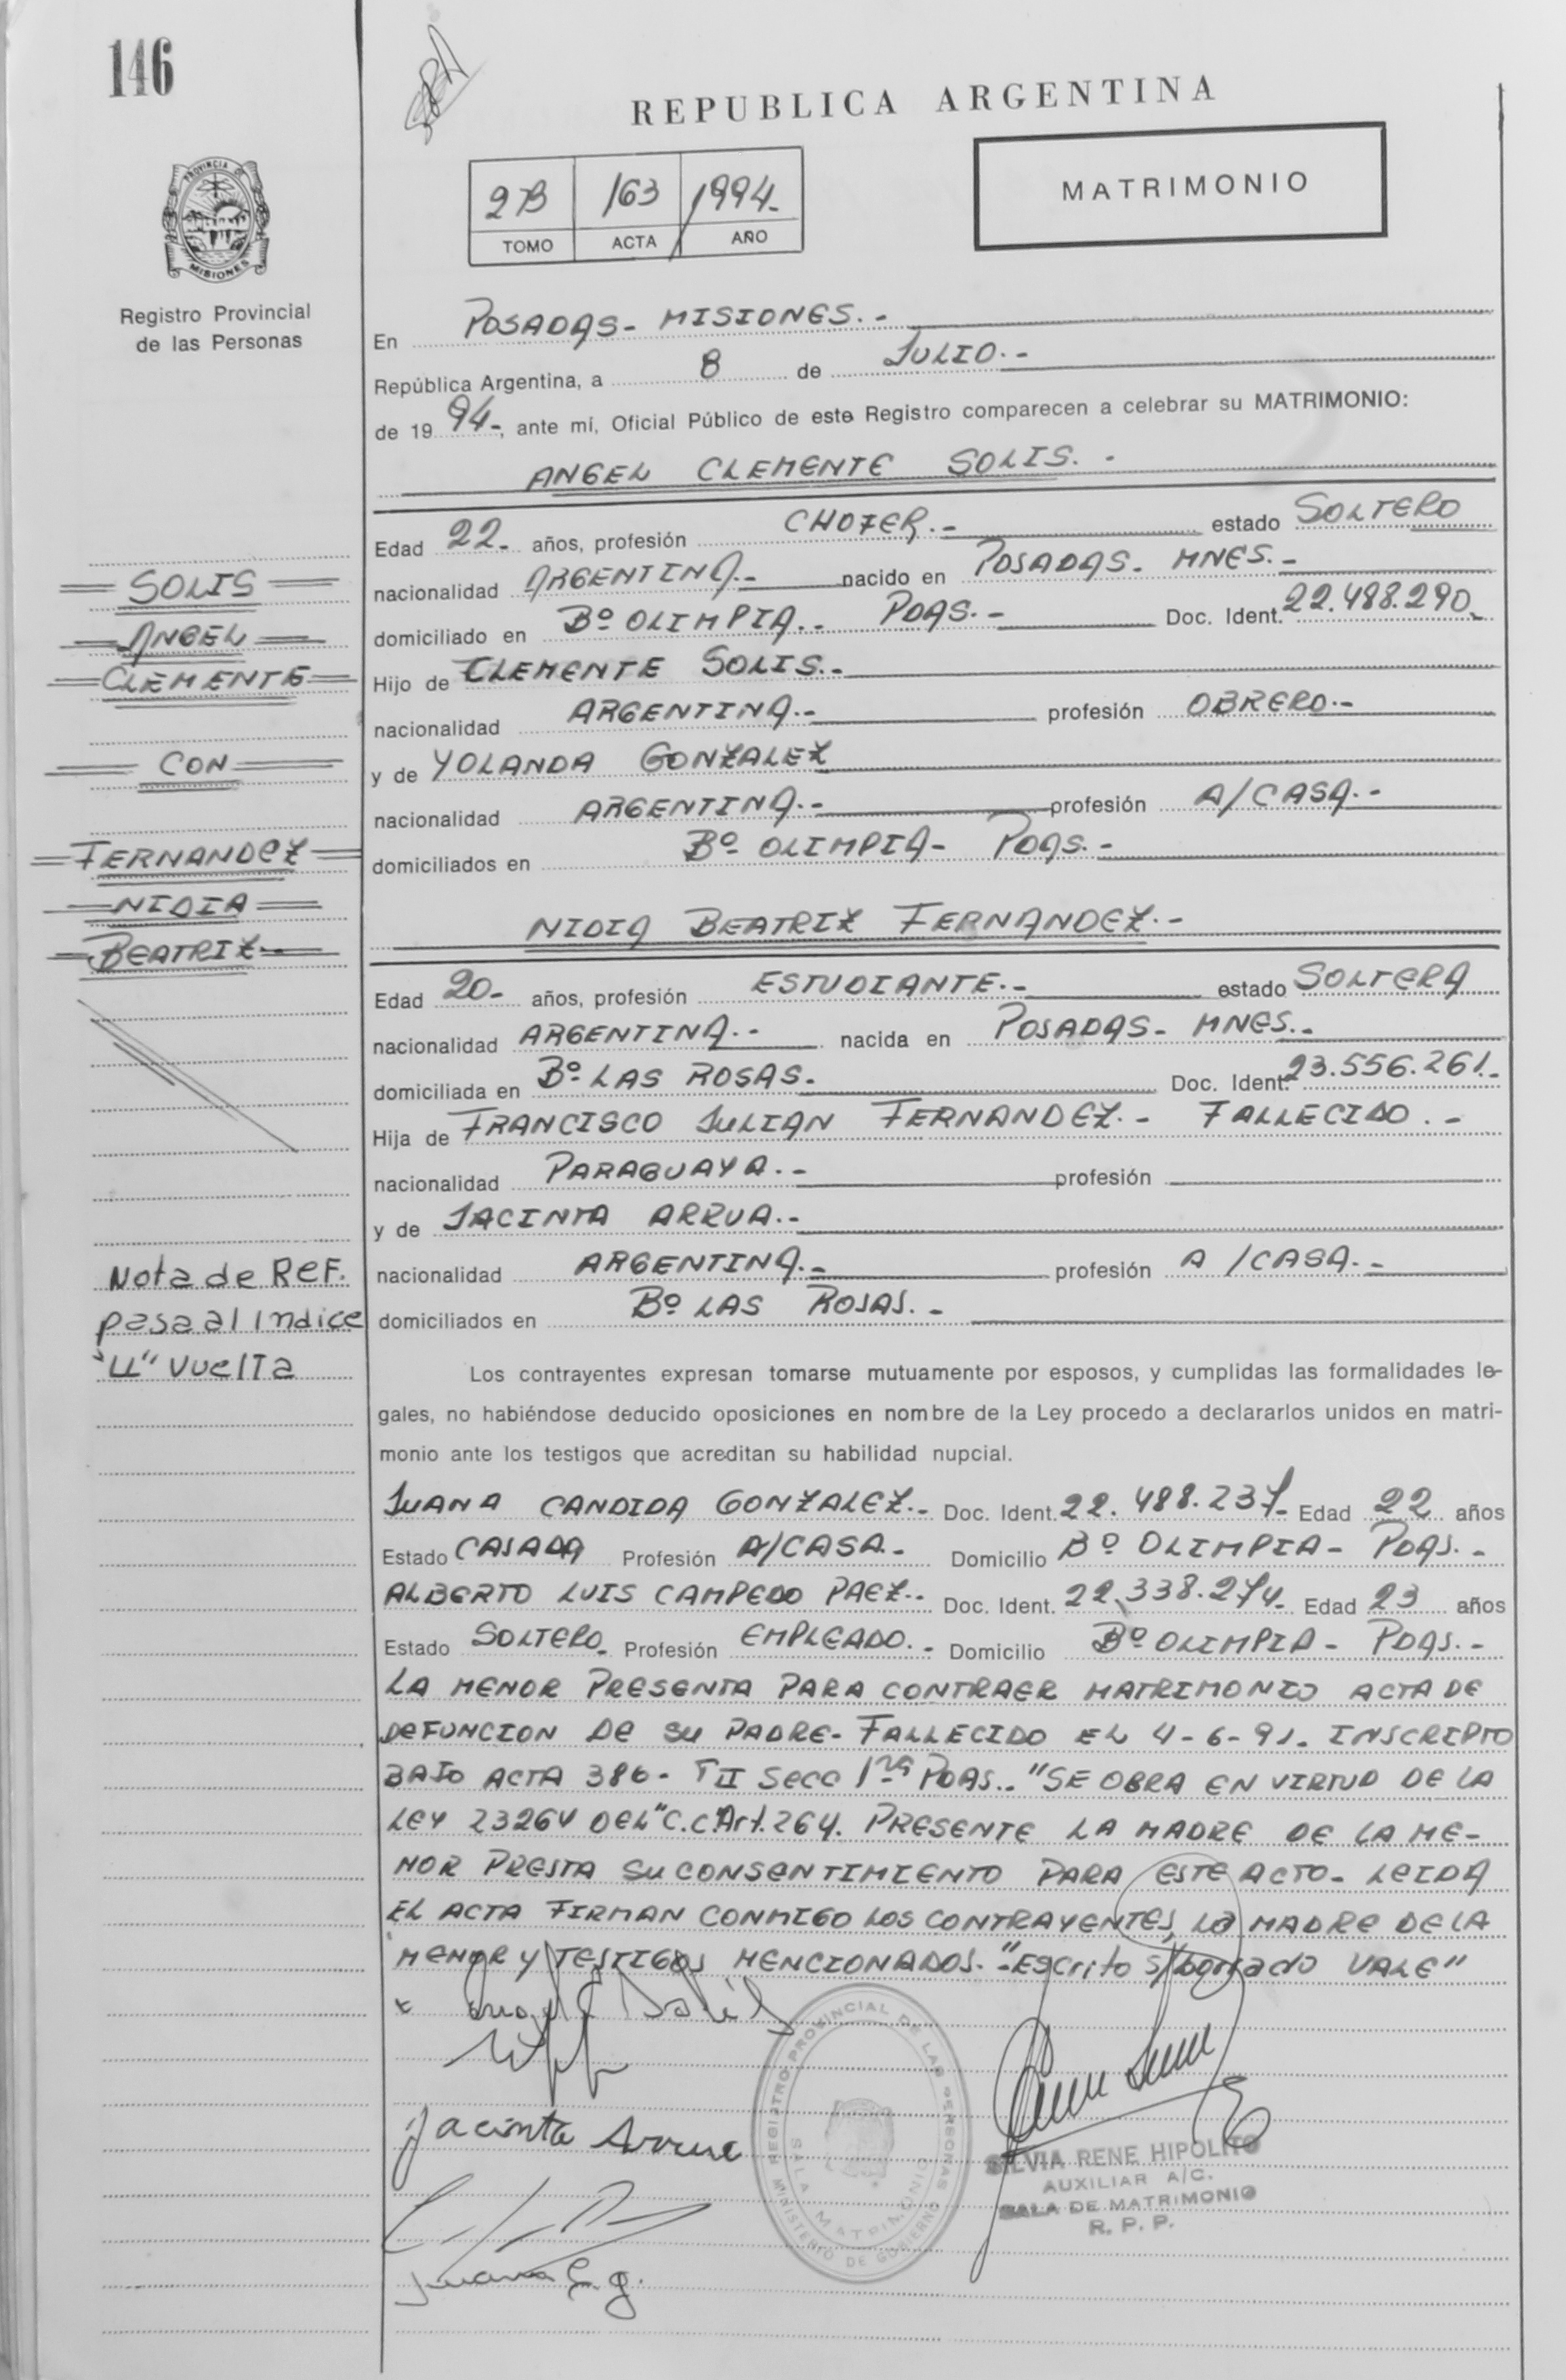 146
REPUBLICA ARGENTINA
MATRIMONIO
2B 163 1994.-
TOMO ACTA AÑO
PROVINCIA DE
MISIONES
Registro Provincial
de las Personas
En POSADAS- MISIONES.-
República Argentina, a 8 de JULIO.-
de 19 94-, ante mí, Oficial Público de este Registro comparecen a celebrar su MATRIMONIO:
ANGEL CLEMENTE SOLIS.-
Edad 22- años, profesión CHOFER.- estado SOLTERO
nacionalidad ARGENTINA.- nacido en POSADAS- MNES.-
domiciliado en Bº OLIMPIA.- PDAS.- Doc. Ident. 22.488.290.
Hijo de CLEMENTE SOLIS.-
nacionalidad ARGENTINA.- profesión OBRERO.-
y de YOLANDA GONZALEZ
nacionalidad ARGENTINA.- profesión A/CASA.-
domiciliados en Bº OLIMPIA- PDAS.-
SOLIS
ANGEL
CLEMENTE
CON
FERNANDEZ
NIDIA
BEATRIZ.-
NIDIA BEATRIZ FERNANDEZ.-
Edad 20- años, profesión ESTUDIANTE.- estado SOLTERA
nacionalidad ARGENTINA.- nacida en POSADAS- MNES.-
domiciliada en Bº LAS ROSAS.- Doc. Ident. 23.556.261.-
Hija de FRANCISCO JULIAN FERNANDEZ.- FALLECIDO.-
nacionalidad PARAGUAYA.- profesión
y de JACINTA ARRUA.-
nacionalidad ARGENTINA.- profesión A/CASA.-
domiciliados en Bº LAS ROSAS.-
Nota de REF.
pasa al Indice
"U" vuelta
Los contrayentes expresan tomarse mutuamente por esposos, y cumplidas las formalidades le-
gales, no habiéndose deducido oposiciones en nombre de la Ley procedo a declararlos unidos en matri-
monio ante los testigos que acreditan su habilidad nupcial.
JUANA CANDIDA GONZALEZ.- Doc. Ident. 22.488.237- Edad 22 años
Estado CASADA Profesión A/CASA.- Domicilio Bº OLIMPIA- PDAS.-
ALBERTO LUIS CAMPEDO PAEZ.- Doc. Ident. 22.338.274- Edad 23 años
Estado SOLTERO- Profesión EMPLEADO.- Domicilio Bº OLIMPIA- PDAS.-
LA MENOR PRESENTA PARA CONTRAER MATRIMONIO ACTA DE
DEFUNCION DE SU PADRE- FALLECIDO EL 4-6-91. INSCRIPTO
BAJO ACTA 386- T II Secc 1ra PDAS.- "SE OBRA EN VIRTUD DE LA
LEY 23264 DEL "C.C" Art. 264. PRESENTE LA MADRE DE LA ME-
NOR PRESTA SU CONSENTIMIENTO PARA ESTE ACTO- LEIDA
EL ACTA FIRMAN CONMIGO LOS CONTRAYENTES, LA MADRE DE LA
MENOR Y TESTIGOS MENCIONADOS.- "Escrito s/borrado VALE"
Jacinta Arrua
Juana C. g.
REGISTRO PROVINCIAL DE LAS PERSONAS
SALA MATRIMONIO
MINISTERIO DE GOBIERNO
SILVIA RENE HIPOLITO
AUXILIAR A/C.
SALA DE MATRIMONIO
R. P. P.